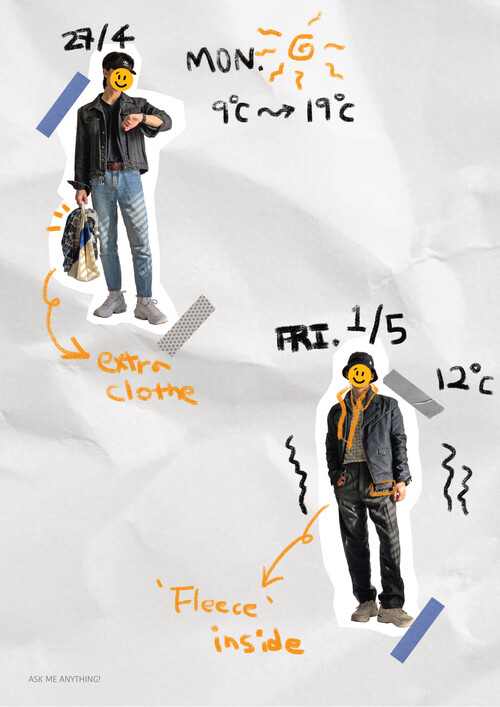 27/4
MON.
9°C ~> 19°C
extra
clothe
FRI. 1/5
12°C
'Fleece'
inside
ASK ME ANYTHING!